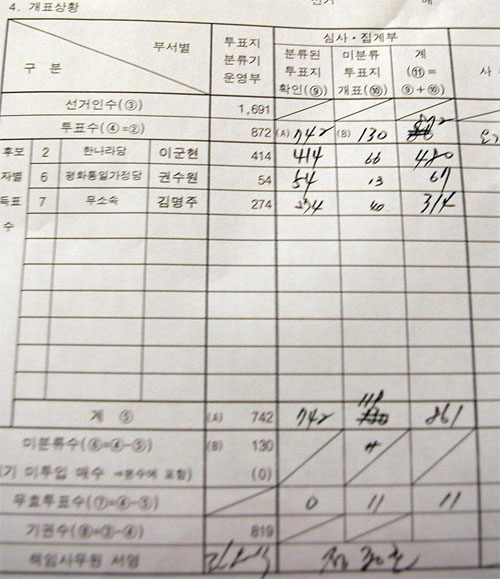 4. 개표상황
부서별
구 분
투표지
분류기
운영부
심사·집계부
분류된
투표지
확인(⑨)
미분류
투표지
개표(⑩)
계
(⑪=
⑨+⑩)
선거인수(③) 1,691
투표수(④=②) 872 (A) 742 (B) 130 872
후보 2 한나라당 이군현 414 414 66 480
자별 6 평화통일가정당 권수원 54 54 13 67
득표 7 무소속 김명주 274 40 314
수
계 ⑤ (A) 742 742 118 861
미분류수(⑥=④-⑤) (B) 130
기 미투입 매수 ⇒본수에 포함) (0)
무효투표수(⑦=④-⑤) 0 11 11
기권수(⑧=③-④) 819
책임사무원 서명